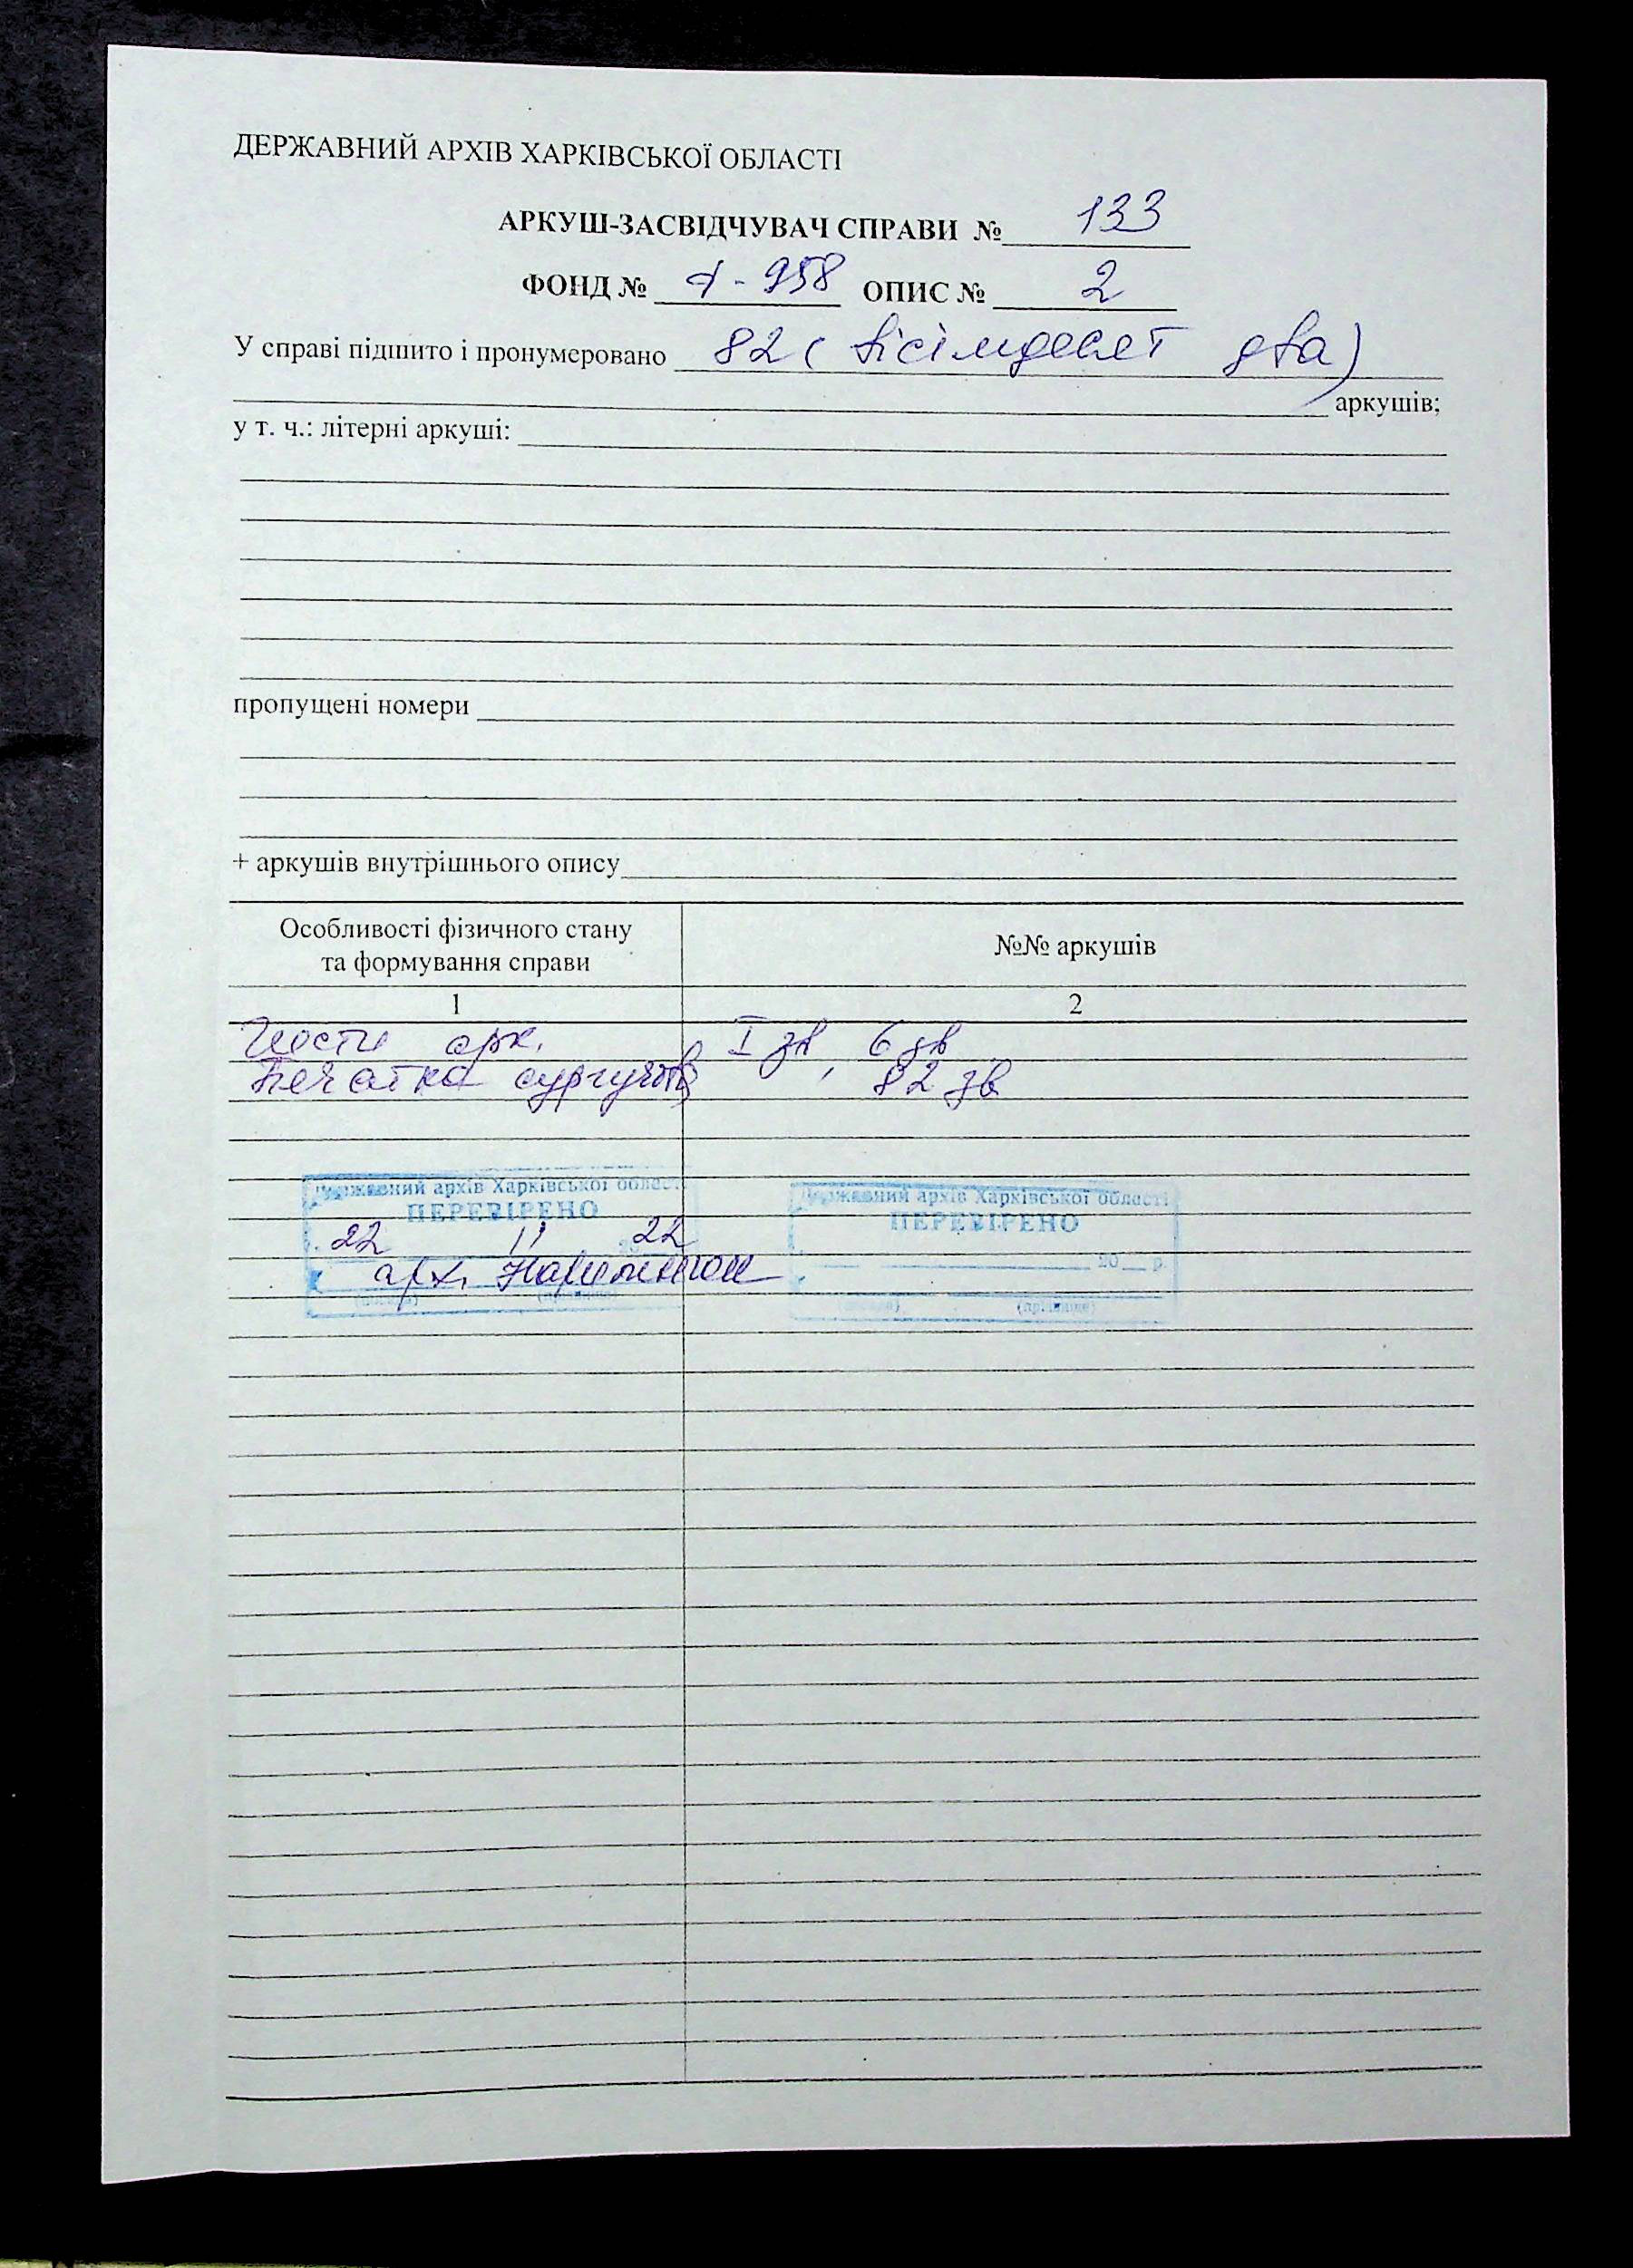 ДЕРЖАВНИЙ АРХІВ ХАРКІВСЬКОЇ ОБЛАСТІ
АРКУШ-ЗАСВІДЧУВАЧ СПРАВИ № 133
ФОНД № -958 ОПИС № 2
У справі підшито і пронумеровано 82 ( вісімдесят два)
аркушів;
у т. ч.: літерні аркуші:
пропущені номери
+ аркушів внутрішнього опису
Особливості фізичного стану та формування справи
№№ аркушів
1 2
арк. I зв, 6 зв
Печатка сургучева , 82 зв
Державний архів Харківської області
ПЕРЕВІРЕНО
22 11 22
арх.
Державний архів Харківської області
ПЕРЕВІРЕНО
20 р.
(посада) (прізвище)